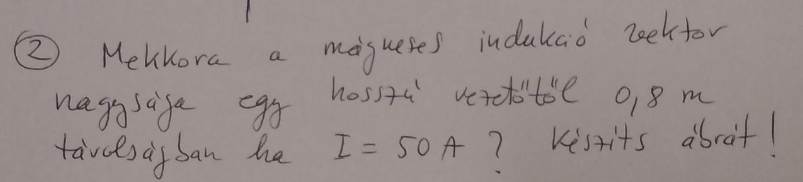 ② Mekkora a mágneses indukció vektor
nagysága egy hosszú vezetőtől 0,8 m
távolságban ha I = 50 A ? Készíts ábrát!